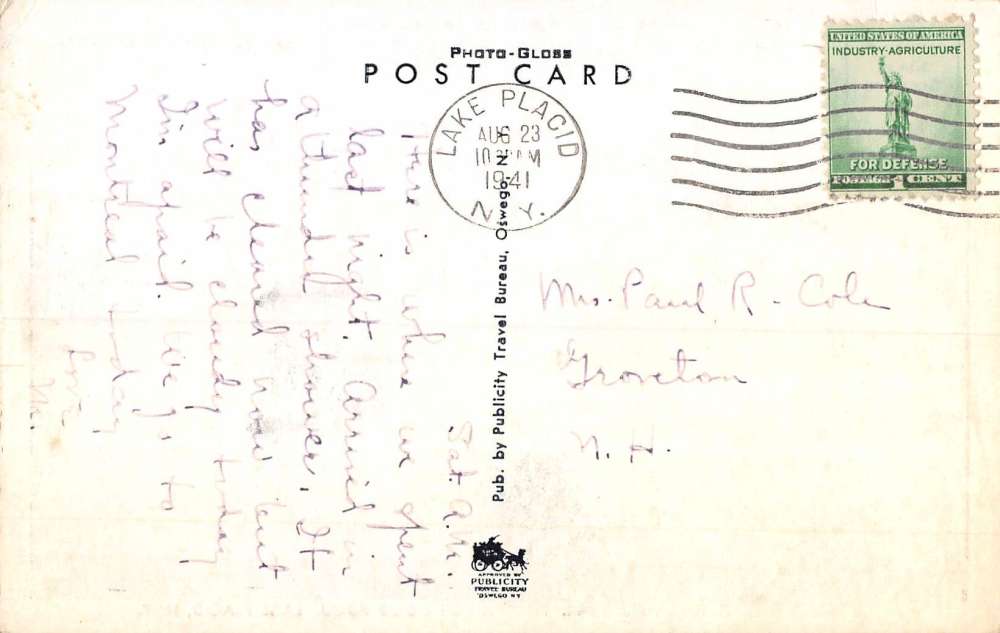 PHOTO-GLOSS
POST CARD
LAKE PLACID
AUG 23
1941
N.Y.
UNITED STATES OF AMERICA
INDUSTRY-AGRICULTURE
FOR DEFENSE
POSTAGE 1 CENT
Sat. A.M.
This is where we spent
last night. Arrived in
a thunder shower. It
has cleared now but
will be cloudy today
I'm afraid. We go to
Montreal today
Love
M.
Mrs. Paul R. Cole
Groveton
N. H.
Pub. by Publicity Travel Bureau, Oswego, N. Y.
APPROVED BY
PUBLICITY
TRAVEL BUREAU
OSWEGO NY